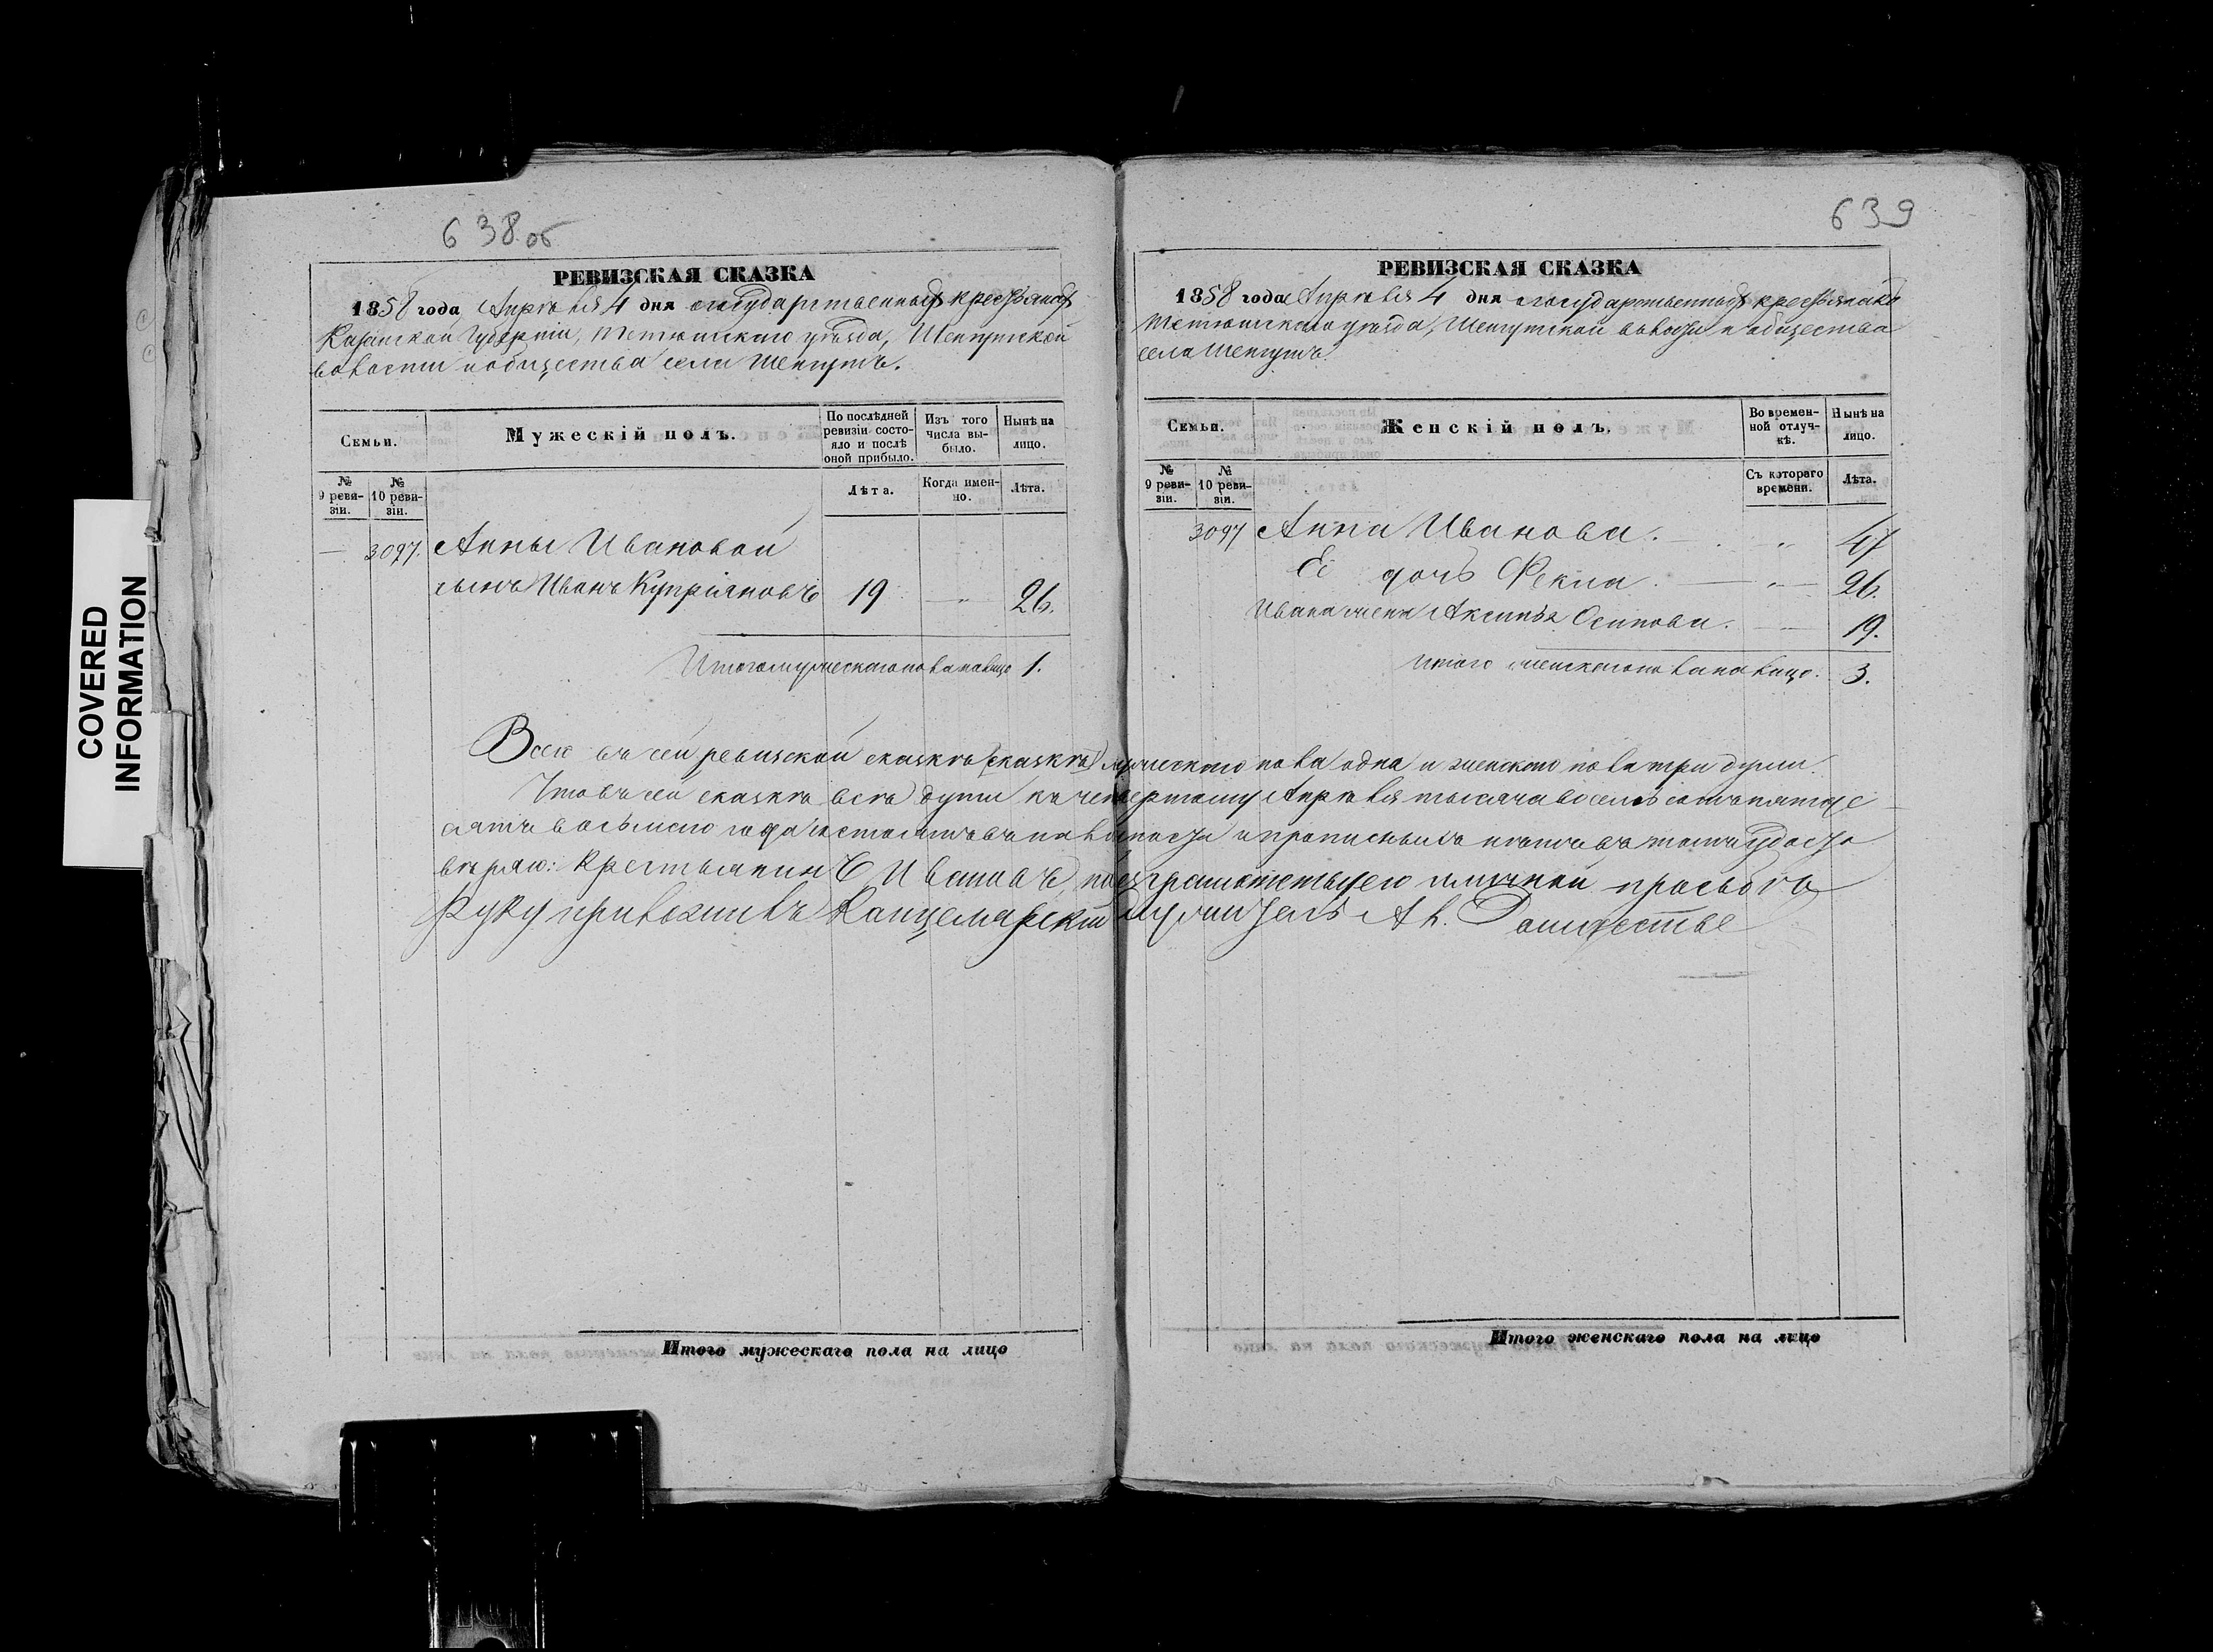 COVERED
INFORMATION
638 об
РЕВИЗСКАЯ СКАЗКА
1858 года Апрѣля 4 дня о государственныхъ крестьянахъ
Казанской Губерніи, Тетюшскаго уѣзда,
волости и общества села
Семьи.
Мужескій полъ.
По послѣдней ревизіи состояло и послѣ оной прибыло.
Изъ того числа выбыло.
Нынѣ на лицо.
№ 9 ревизіи.
№ 10 ревизіи.
Лѣта.
Когда именно.
Лѣта.
— 3097. Анны Ивановой
сынъ Иванъ Купріяновъ 19 — „ — 26.
Итого мужескаго пола на лицо 1.
Итого мужескаго пола на лицо
639
РЕВИЗСКАЯ СКАЗКА
1858 года Апрѣля 4 дня о государственныхъ крестьянахъ
Тетюшскаго уѣзда, волости и общества
села
Семьи.
Женскій полъ.
Во временной отлучкѣ.
Нынѣ на лицо.
№ 9 ревизіи.
№ 10 ревизіи.
Съ котораго времени.
Лѣта.
3097 Анна Иванова. — „ 47
Её дочь Фекла. — „ — 26.
Ивана жена Аксинья Осипова. — 19.
Итого женскаго пола на лицо. 3.
Всего въ сей ревизской сказкѣ (сказкѣ) мужескаго пола одна и женскаго пола три души.
Что въ сей сказкѣ всѣ души къ четвертому Апрѣля тысяча восемь сотъ пятьдес
ятъ восьмаго года состоятъ въ и прописныхъ нѣтъ въ томъ удосто
вѣряю: Крестьянинъ Ивановъ, по его личной просьбѣ
Руку приложилъ Канцелярскій служитель Ал.
Итого женскаго пола на лицо